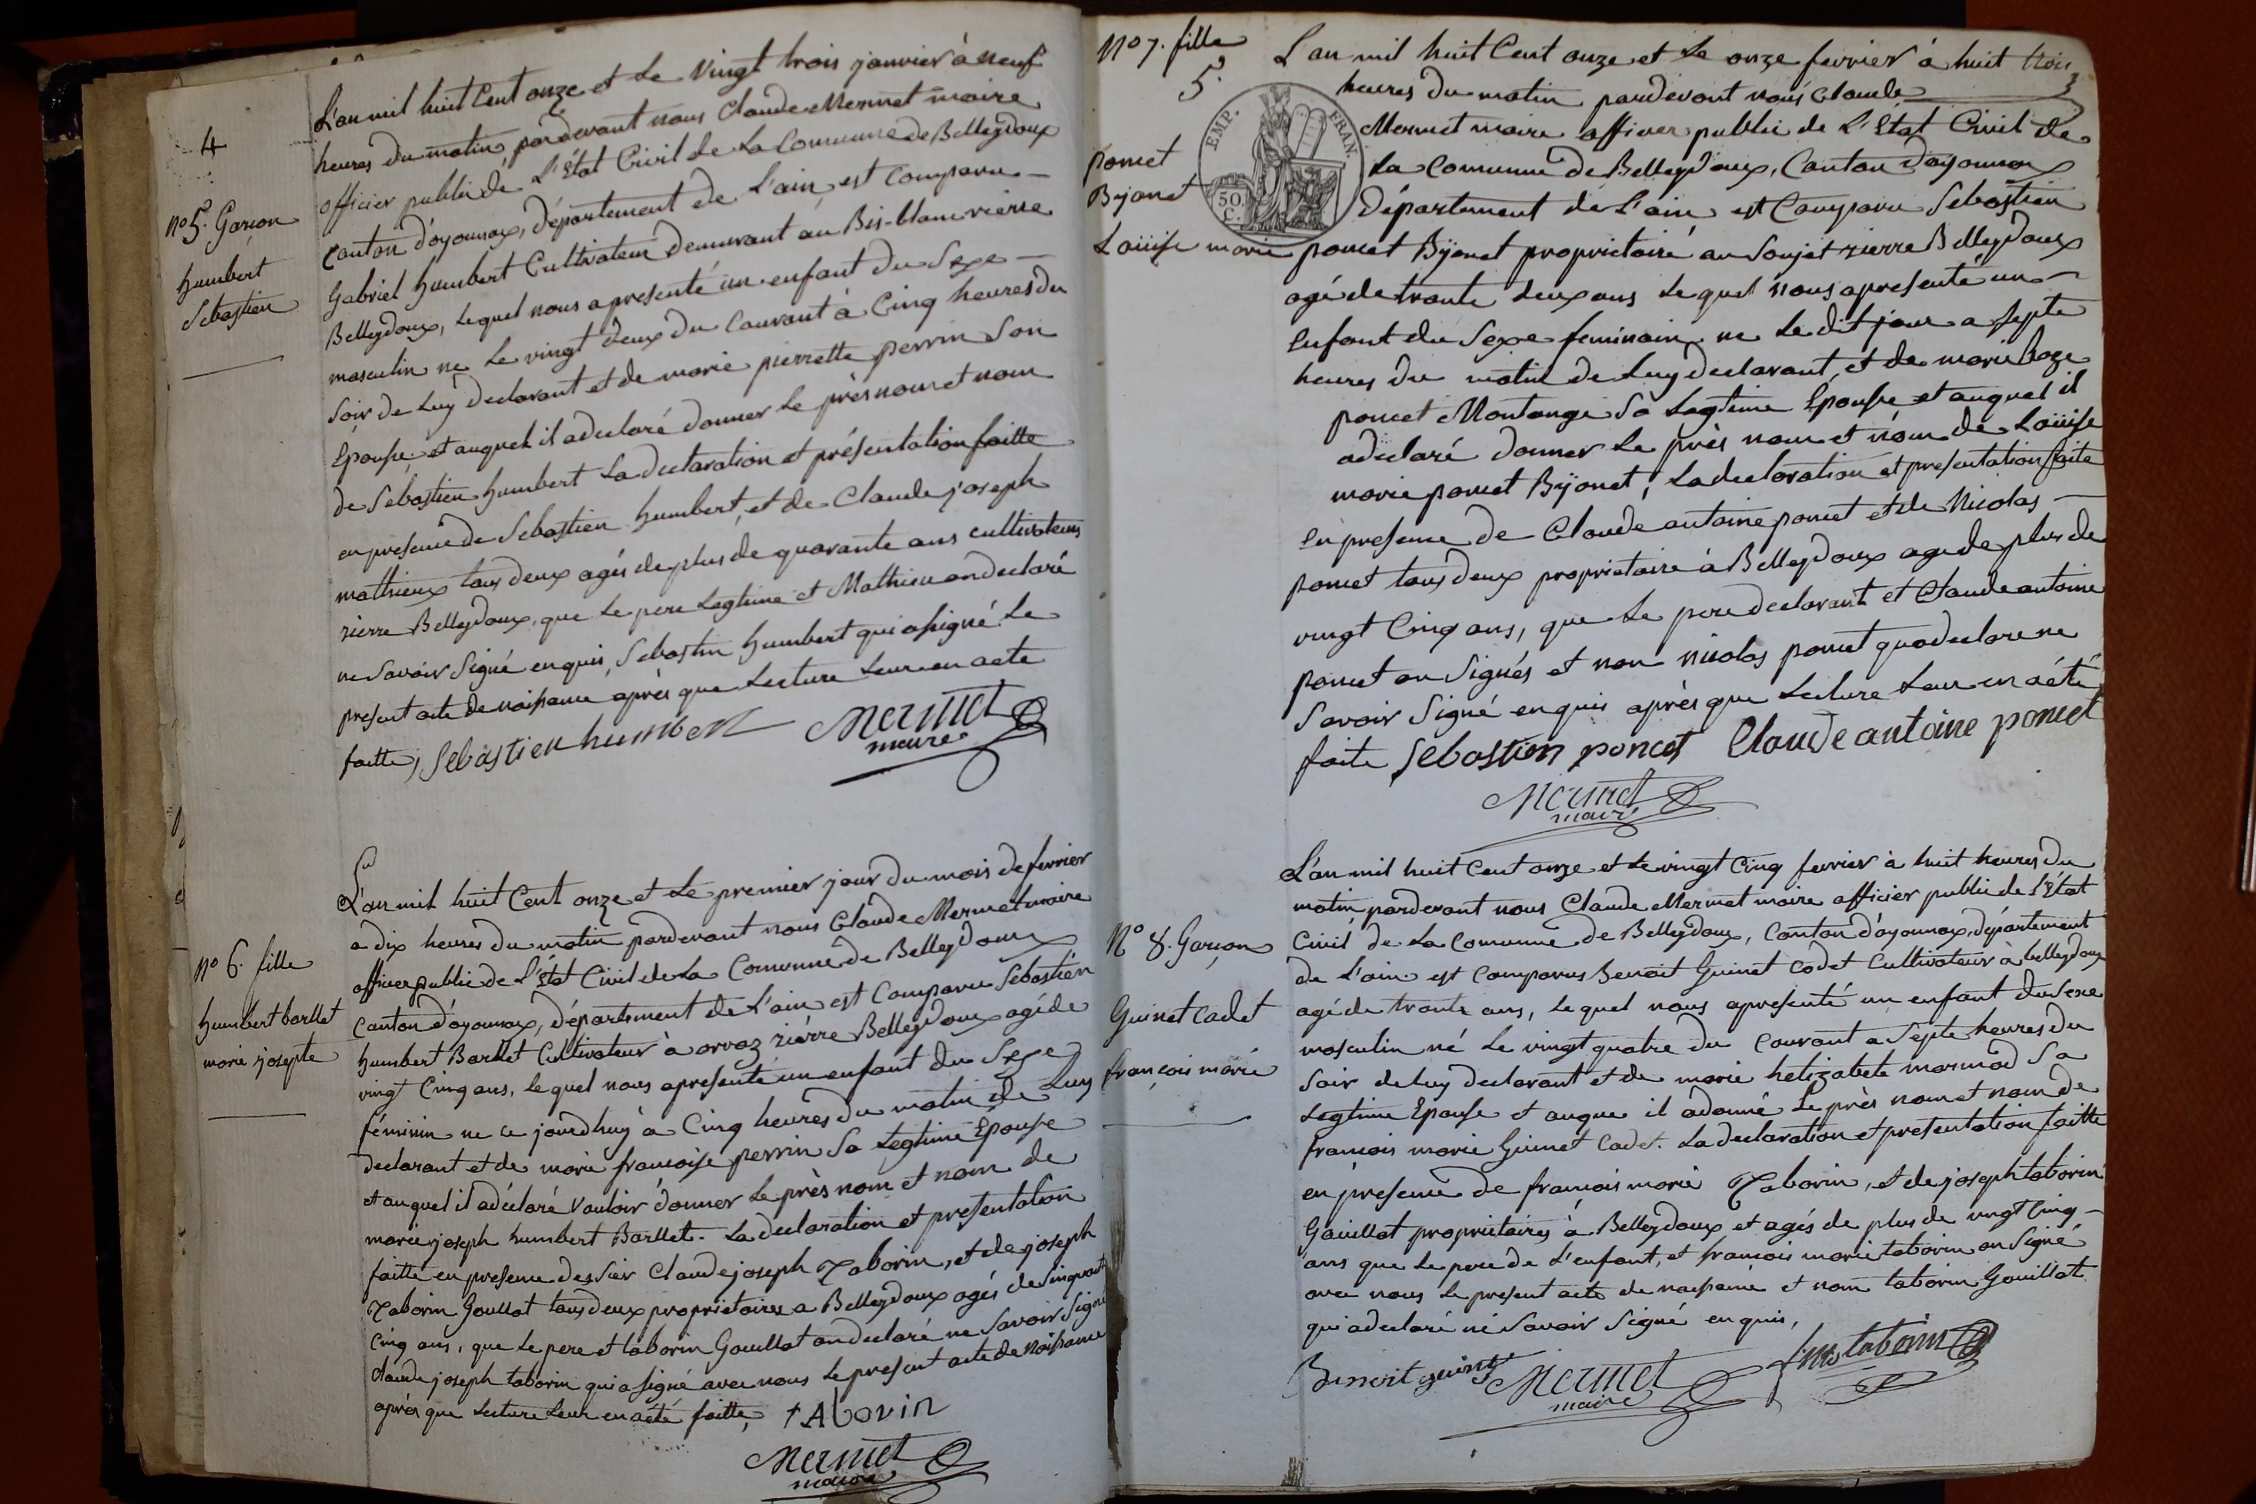 4
nº 5. Garcon
humbert
Sebastien
L'an mil huit Cent onze et Le vingt trois janvier à neuf
heures du matin pardevant nous Claude Mermet maire
officier public de L'État Civil de La Comune de Belleydoux
Canton d'oyonnax, département de L'ain, est Comparu
Gabriel humbert Cultivateur demeurant au
Belleydoux, Lequel nous a presenté un enfant du Sexe
masculin ne Le vingt deux du Courant à Cinq heures du
Soir de Luy declarant et de marie pierrette perrin Son
Épouse et auquel il a declaré donner Le près nom et nom
de Sebastien humbert La declaration et présentation faitte
en presence de Sebastien humbert, et de Claude joseph
mathieux tous deux agés de plus de quarante ans cultivateurs
rierre Belleydoux, que Le pere Legtime et Mathieu on declaré
ne Savoir Signé enquis, Sebastien humbert qui a signé Le
present acte de naissance après que Lecture Leur en acte
faitte, Sebastien humbert Mermet
maire
nº 6. fille
humbert barllet
marie josepte
L'an mil huit Cent onze et Le premier jour du mois de fevrier
a dix heures du matin pardevant nous Claude Mermet maire
officier public de L'État Civil de La Comunne de Belleydoux
Canton d'oyonnax, département de L'ain est Comparu Sebastien
humbert Barllet Cultivateur à orvaz rierre Belleydoux agé de
vingt Cinq ans, lequel nous a presenté un enfant du Sexe
féminin ne ce jourdhuy à Cinq heures du matin de Luy
declarant et de marie francoise perrin Sa Legtime Epouse
et auquel il a déclaré Vouloir donner Le près nom et nom de
marie joseph humbert Barllet. La declaration et presentation
faitte en presence des Sier Claude joseph Taborin, et de joseph
Taborin Goullat tous deux proprietaires a Belleydoux agés de Sinquante
Cinq ans, que Le pere et taborin Gouillat on declaré ne Savoir Signé
Claude joseph taborin qui a Signé avec nous Le present acte de naissance
après que Lecture Leur en a été faitte, tAborin
Mermet
maire
nº 7. fille
5
poncet
Bijonet
Louise marie
EMP. FRAN.
50. C.
L'an mil huit Cent onze et Le onze fevrier à huit trois
heures du matin pardevant nous Claude
Mermet maire officier public de L'État Civil de
La Comunne de Belleydoux, Canton d'oyonnax
département de L'ain est Comparu Sebastien
poncet Bijonet proprietaire au Soujet rierre Belleydoux
agé de trante deux ans Lequel nous a presenté un
enfant du Sexe feminain ne Le dit jour a Septe
heures du matin de Luy declarant et de marie
poncet Montange Sa Legtime Épouse et auquel il
a declaré donner Le près nom et nom de Loüise
marie poncet Bijonet, La declaration et presentation faite
en presence de Claude antoine poncet et de Nicolas
poncet tous deux proprietaire à Belleydoux agé de plus de
vingt Cinq ans, que Le pere declarant et Claude antoine
poncet on Signés et non nicolas poncet qua declare ne
Savoir Signé enquis après que Lecture Leur en a été
faite Sebastien poncet Claude antoine poncet
Mermet
maire
Nº 8. Garçon
Guinet Cadet
françois marie
L'an mil huit Cent onze et Le vingt Cinq fevrier à huit heures du
matin pardevant nous Claude Mermet maire officier public de L'État
Civil de La Comunne de Belleydoux, Canton d'oyonnax, département
de L'ain est Comparus Benoit Guinet Cadet Cultivateur à belleydoux
agé de trante ans, Lequel nous a presenté un enfant du Sexe
masculin né Le vingt quatre du Courant a Septe heures du
Soir de Luy declarant et de marie helizabete marmod Sa
Legtime Epouse et auque il a donné Le près nom et nom de
francois marie Guinet Cadet. La declaration et presentation faitte
en presence de francois marie Taborin, et de joseph taborin
Gouillat proprietaires à Belleydoux et agés de plus de vingt Cinq
ans que Le pere de L'enfant, et francois marie taborin on Signé
avec nous Le present acte de naissance et nom taborin Gouillat
qui a declaré ne Savoir Signé enquis,
Benoit guinet Mermet
maire
fms taborin